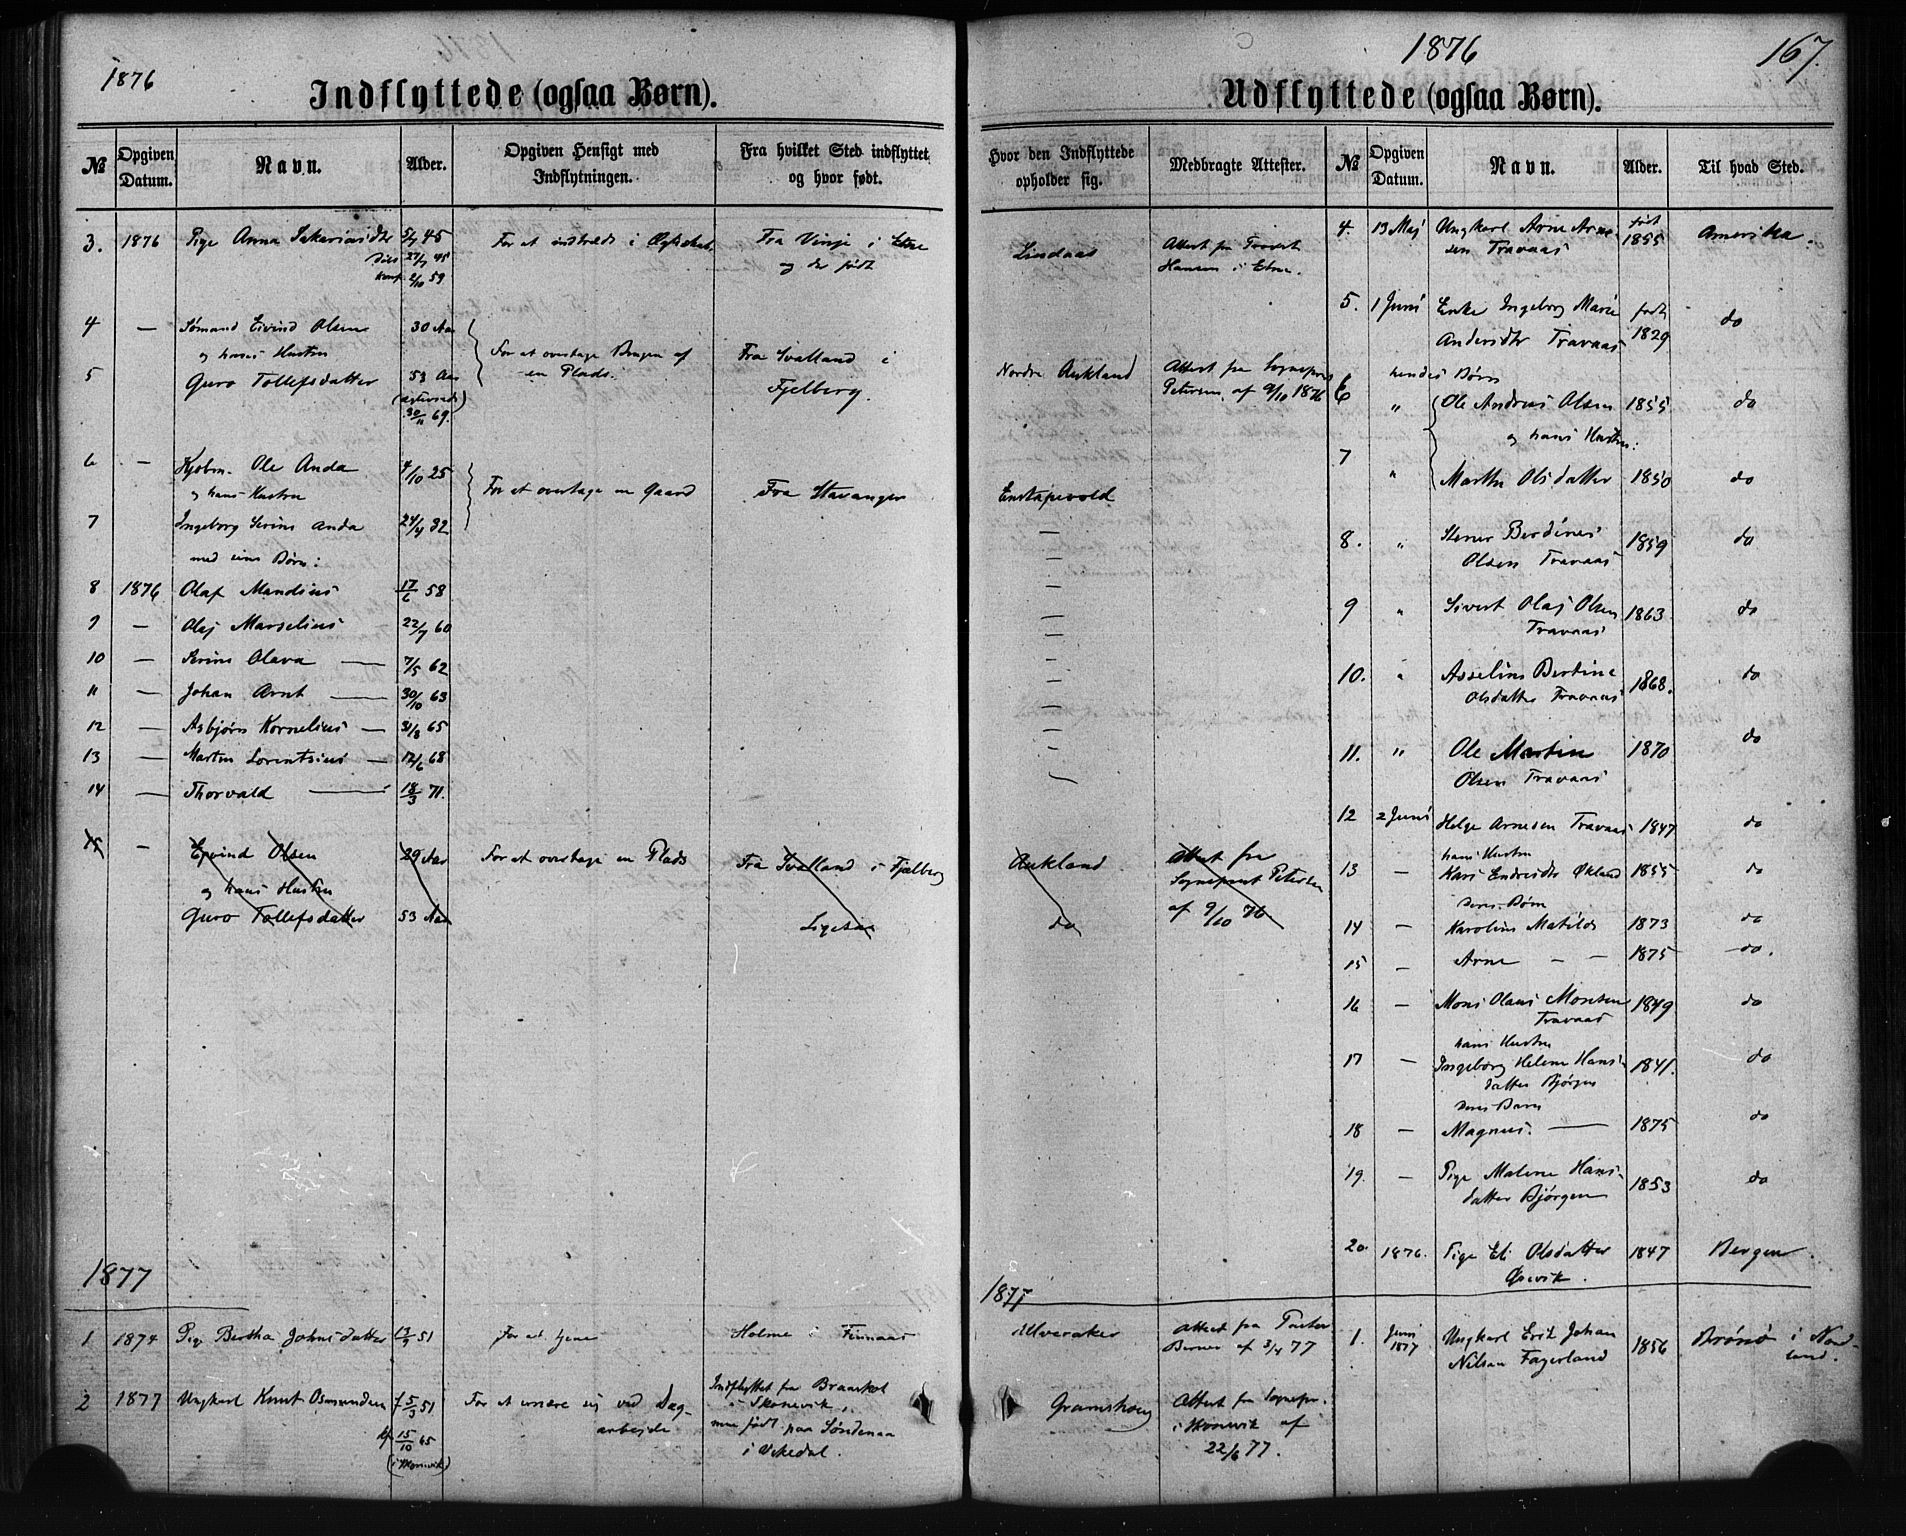 1876
Indflyttede (ogsaa Børn).
№
Opgiven Datum.
Navn.
Alder.
Opgiven Hensigt med Indflytningen.
Fra hvilket Sted indflyttet og hvor født.
3. 1876 Pige Anna Sakariasdtr 5/7 45 For at indtræde i Ægteskab Fra Vinje i Etne
døbt 27/7 45 og der født
konf. 2/10 59
4 — Sømand Eivind Olsen 30 Aar
og hans Hustru For at overtage Brugen af Fra Svalland i
5 Guro Tollefsdatter 53 Aar en Plads. Fjelberg.
30/11 69.
6 — Kjøbm. Ole Anda 4/10 25
og hans Hustru For at overtage en Gaard Fra Stavanger
7 Ingeborg Serine Anda 24/4 32
med sine Børn:
8 1876 Olaf Mandius 17/6 58
9 — Olaj Marselius 22/7 60
10 — Serine Olava — 7/5 62
11 — Johan Arnt — 30/10 63
12 — Asbjørn Kornelius — 31/8 65
13 — Martin Lorentsius — 12/6 68
14 — Thorvald — 18/3 71.
15 — Eivind Olsen 29 Aar For at overtage en Plads Fra Svalland i Fjelberg
og hans Hustru
Guro Tollefsdatter 53 Aar Ligesaa
1877
1 1874 Pige Bertha Johnsdatter 13/9 51 For at tjene Holme i Finnaas
2 1877 Ungkarl Knut Osmundsen f 5/3 51 For at ernære sig ved Dag- Indflyttet fra Braaskot
arbejde i Skonevik,
kf 15/10 65 men født paa Søndenaa
(i Skonevik) i Vikedal.
1876
167.
Udflyttede (ogsaa Børn).
Hvor den Indflyttede opholder sig.
Medbragte Attester.
№
Opgiven Datum.
Navn.
Alder.
Til hvad Sted.
Lindaas Attest fra Provst
Hansen i Etne.
Nordre Aukland Attest fra Sognepres
Petersen af 9/10 1876
Enstapevold
—
—
—
—
—
—
—
—
Aukland Attest fra
Sogneprest Petersen
do af 9/10 76
4. 13 Maj Ungkarl Arne Arne- født 1855 Amerika.
sen Travaas
5. 1 Juni Enke Ingeborg Marie født 1829 do
Andersdtr Travaas
hendes Børn
6 " Ole Andreas Olsen 1855 do
og hans Hustru:
7 " Martha Olsdatter 1850 do
8. " Berdines 1859 do
Olsen Travaas
9 " Sivert Olaj Olsen 1863 do
Travaas
10. " Asseline Bertine 1868. do
Olsdatter Travaas
11. " Ole Martin 1870 do
Olsen Travaas
12 2 Juni Helge Arnesen Travaas 1847 do
hans Hustru
13 — Kari Endresdtr Økland 1855 do
Deres Børn
14 — Karoline Matilde 1873 do
15 — Arne — — 1875 do.
16 — Mons Olaus Monsen 1849 do
Travaas
hans Hustru
17 — Ingeborg Helene Hans- 1841. do
datter Bjørgen
Deres Barn
18 — Magnus. — 1875 do
19. — Pige Malene Hans- 1853 do
datter Bjørgen
20. 1876. Pige Eli Olsdatter 1847 Bergen.
1877
Ulveraker Attest fra Pastor
Berner af 3/4 77
1. Juni 1877 Ungkarl Erik Johan 1856 Brønø i Nord-
Nilsen Fagerland land.
Gramshaug Attest fra Sognepr.
i Skonevik af
22/6 77.